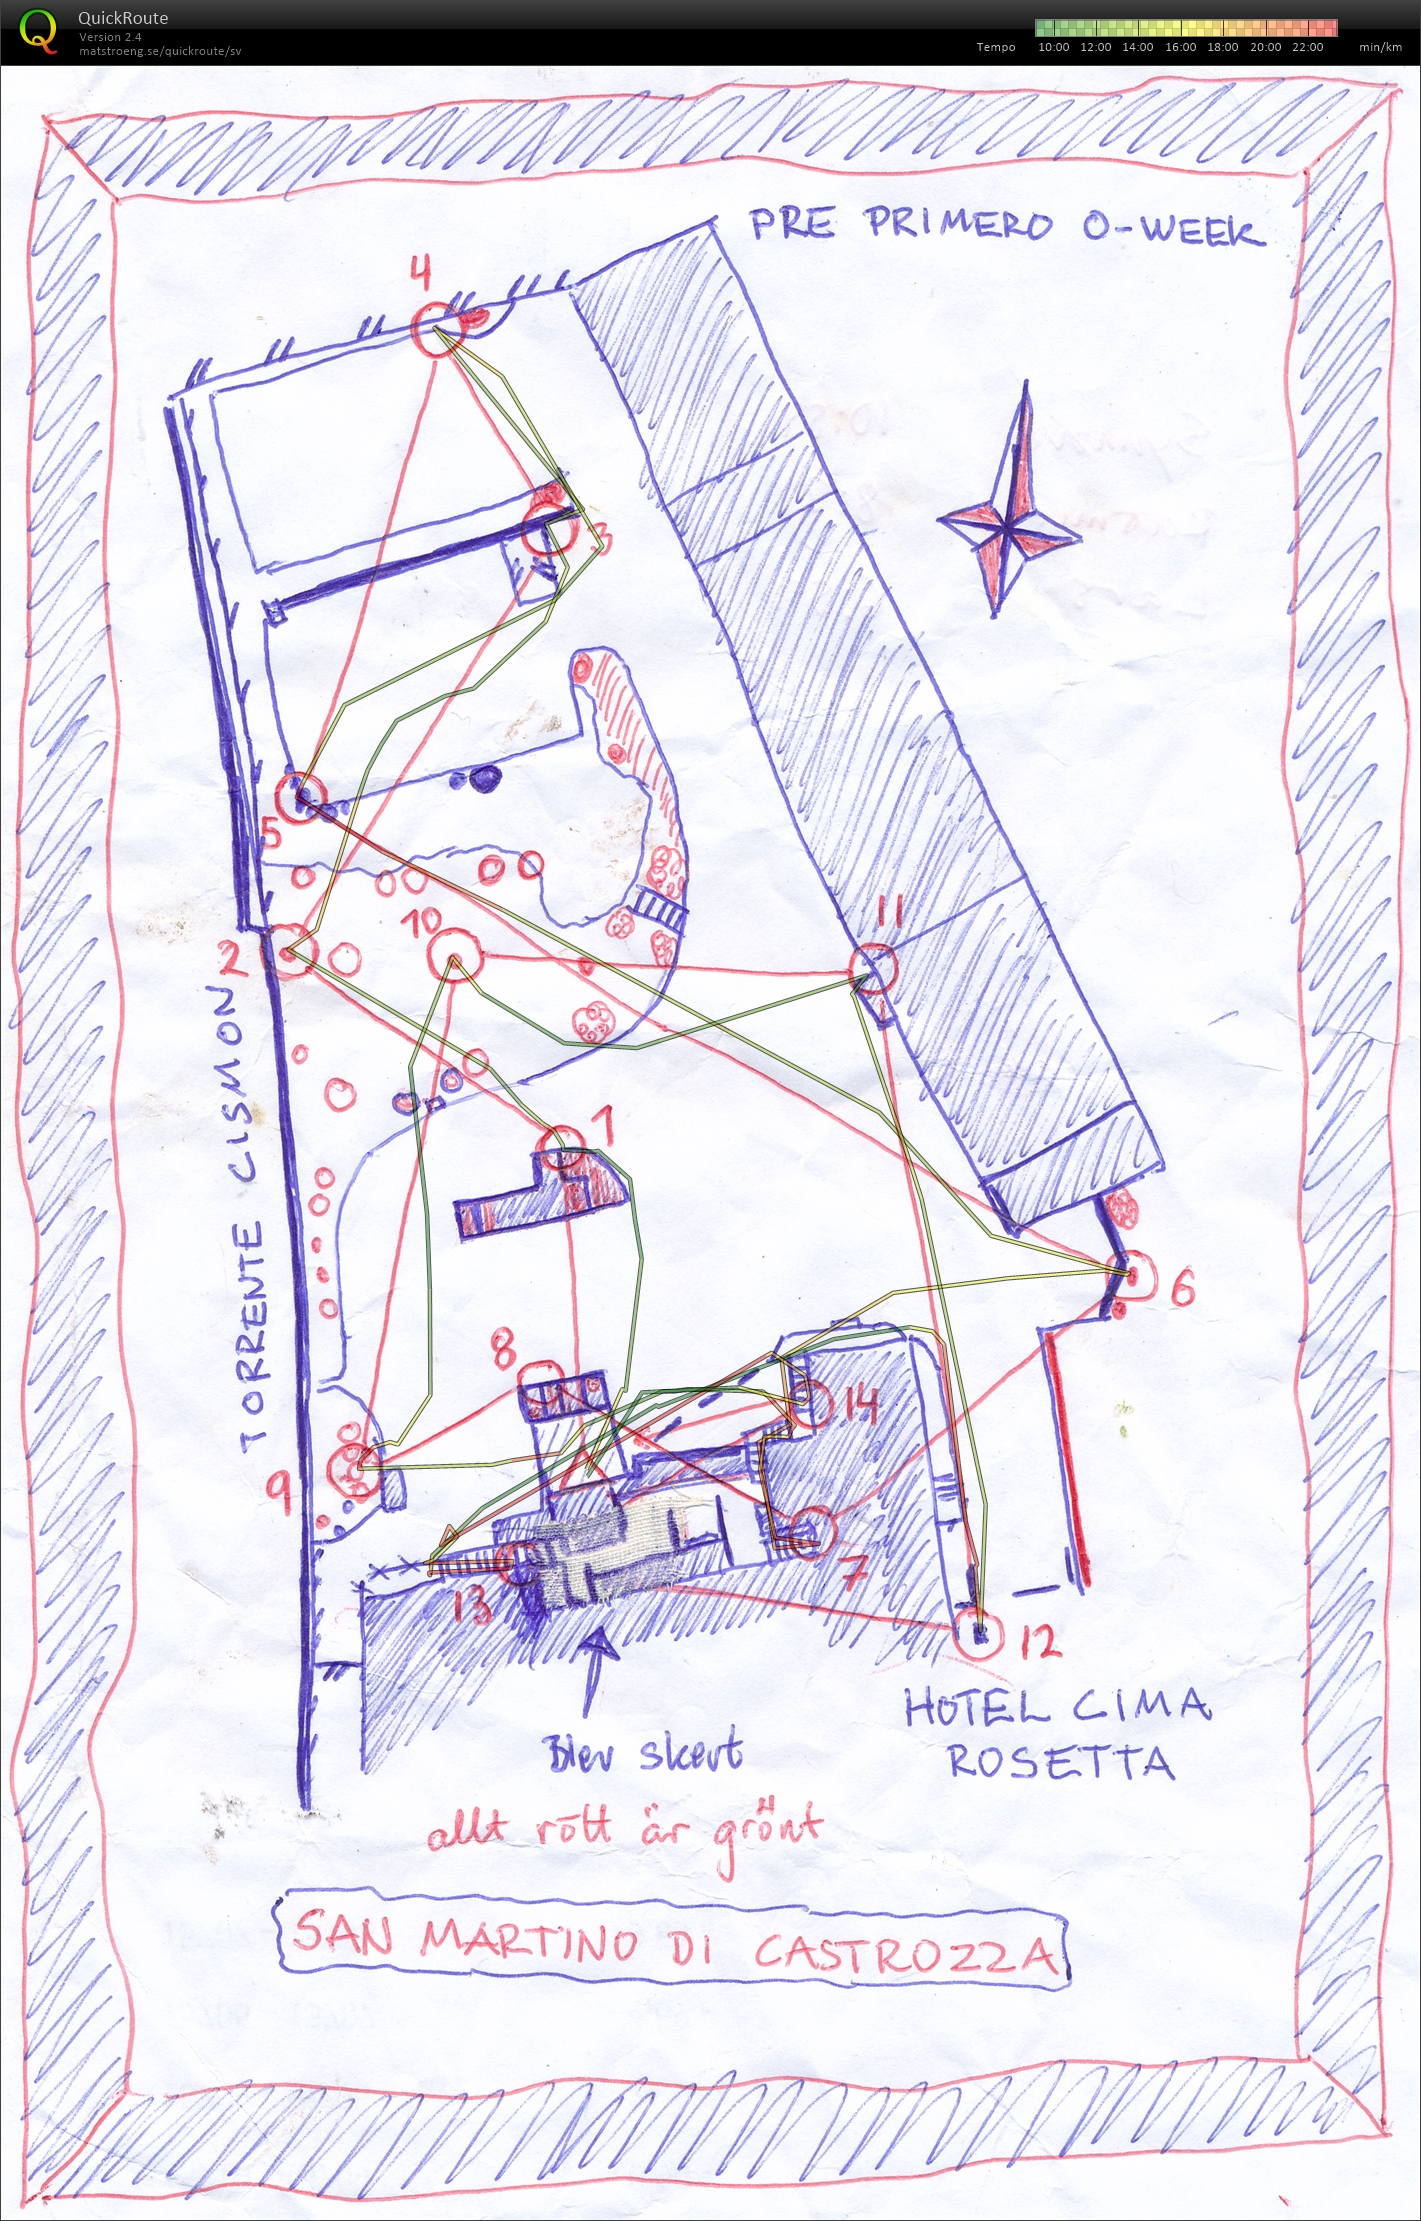 QuickRoute
Version 2.4
matstroeng.se/quickroute/sv
Tempo 10:00 12:00 14:00 16:00 18:00 20:00 22:00 min/km
PRE PRIMERO O-WEEK
4
3
5
11
10
2
TORRENTE CISMON
1
6
8
14
9
7
13
12
HOTEL CIMA
ROSETTA
Blev skevt
allt rött är grönt
SAN MARTINO DI CASTROZZA